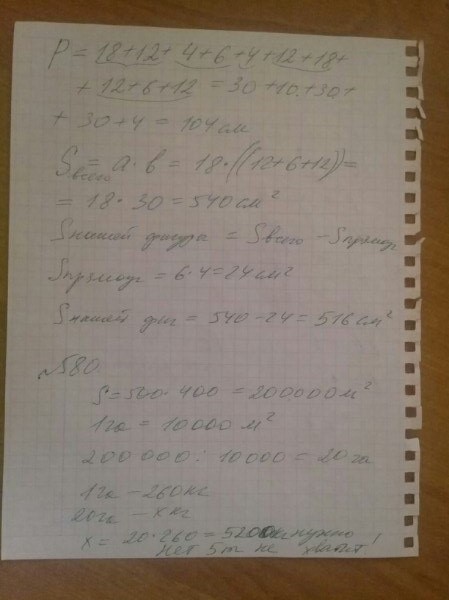 P = 18+12+4+6+4+12+18+
+ 12+6+12 = 30+10+30+
+ 30+4 = 104 см
Sвсего = a·b = 18·((12+6+12))=
= 18·30=540 см²
Sнашей фигуры = Sвсего - Sпрямоуг
Sпрямоуг = 6·4=24 см²
Sнашей фиг = 540-24=516 см²
№580.
S=500·400 = 200000 м²
1 га = 10000 м²
200 000 : 10000 = 20 га
1 га - 260 кг
20 га - x кг
x = 20·260 = 5200 кг нужно
нет 5т не хватит!